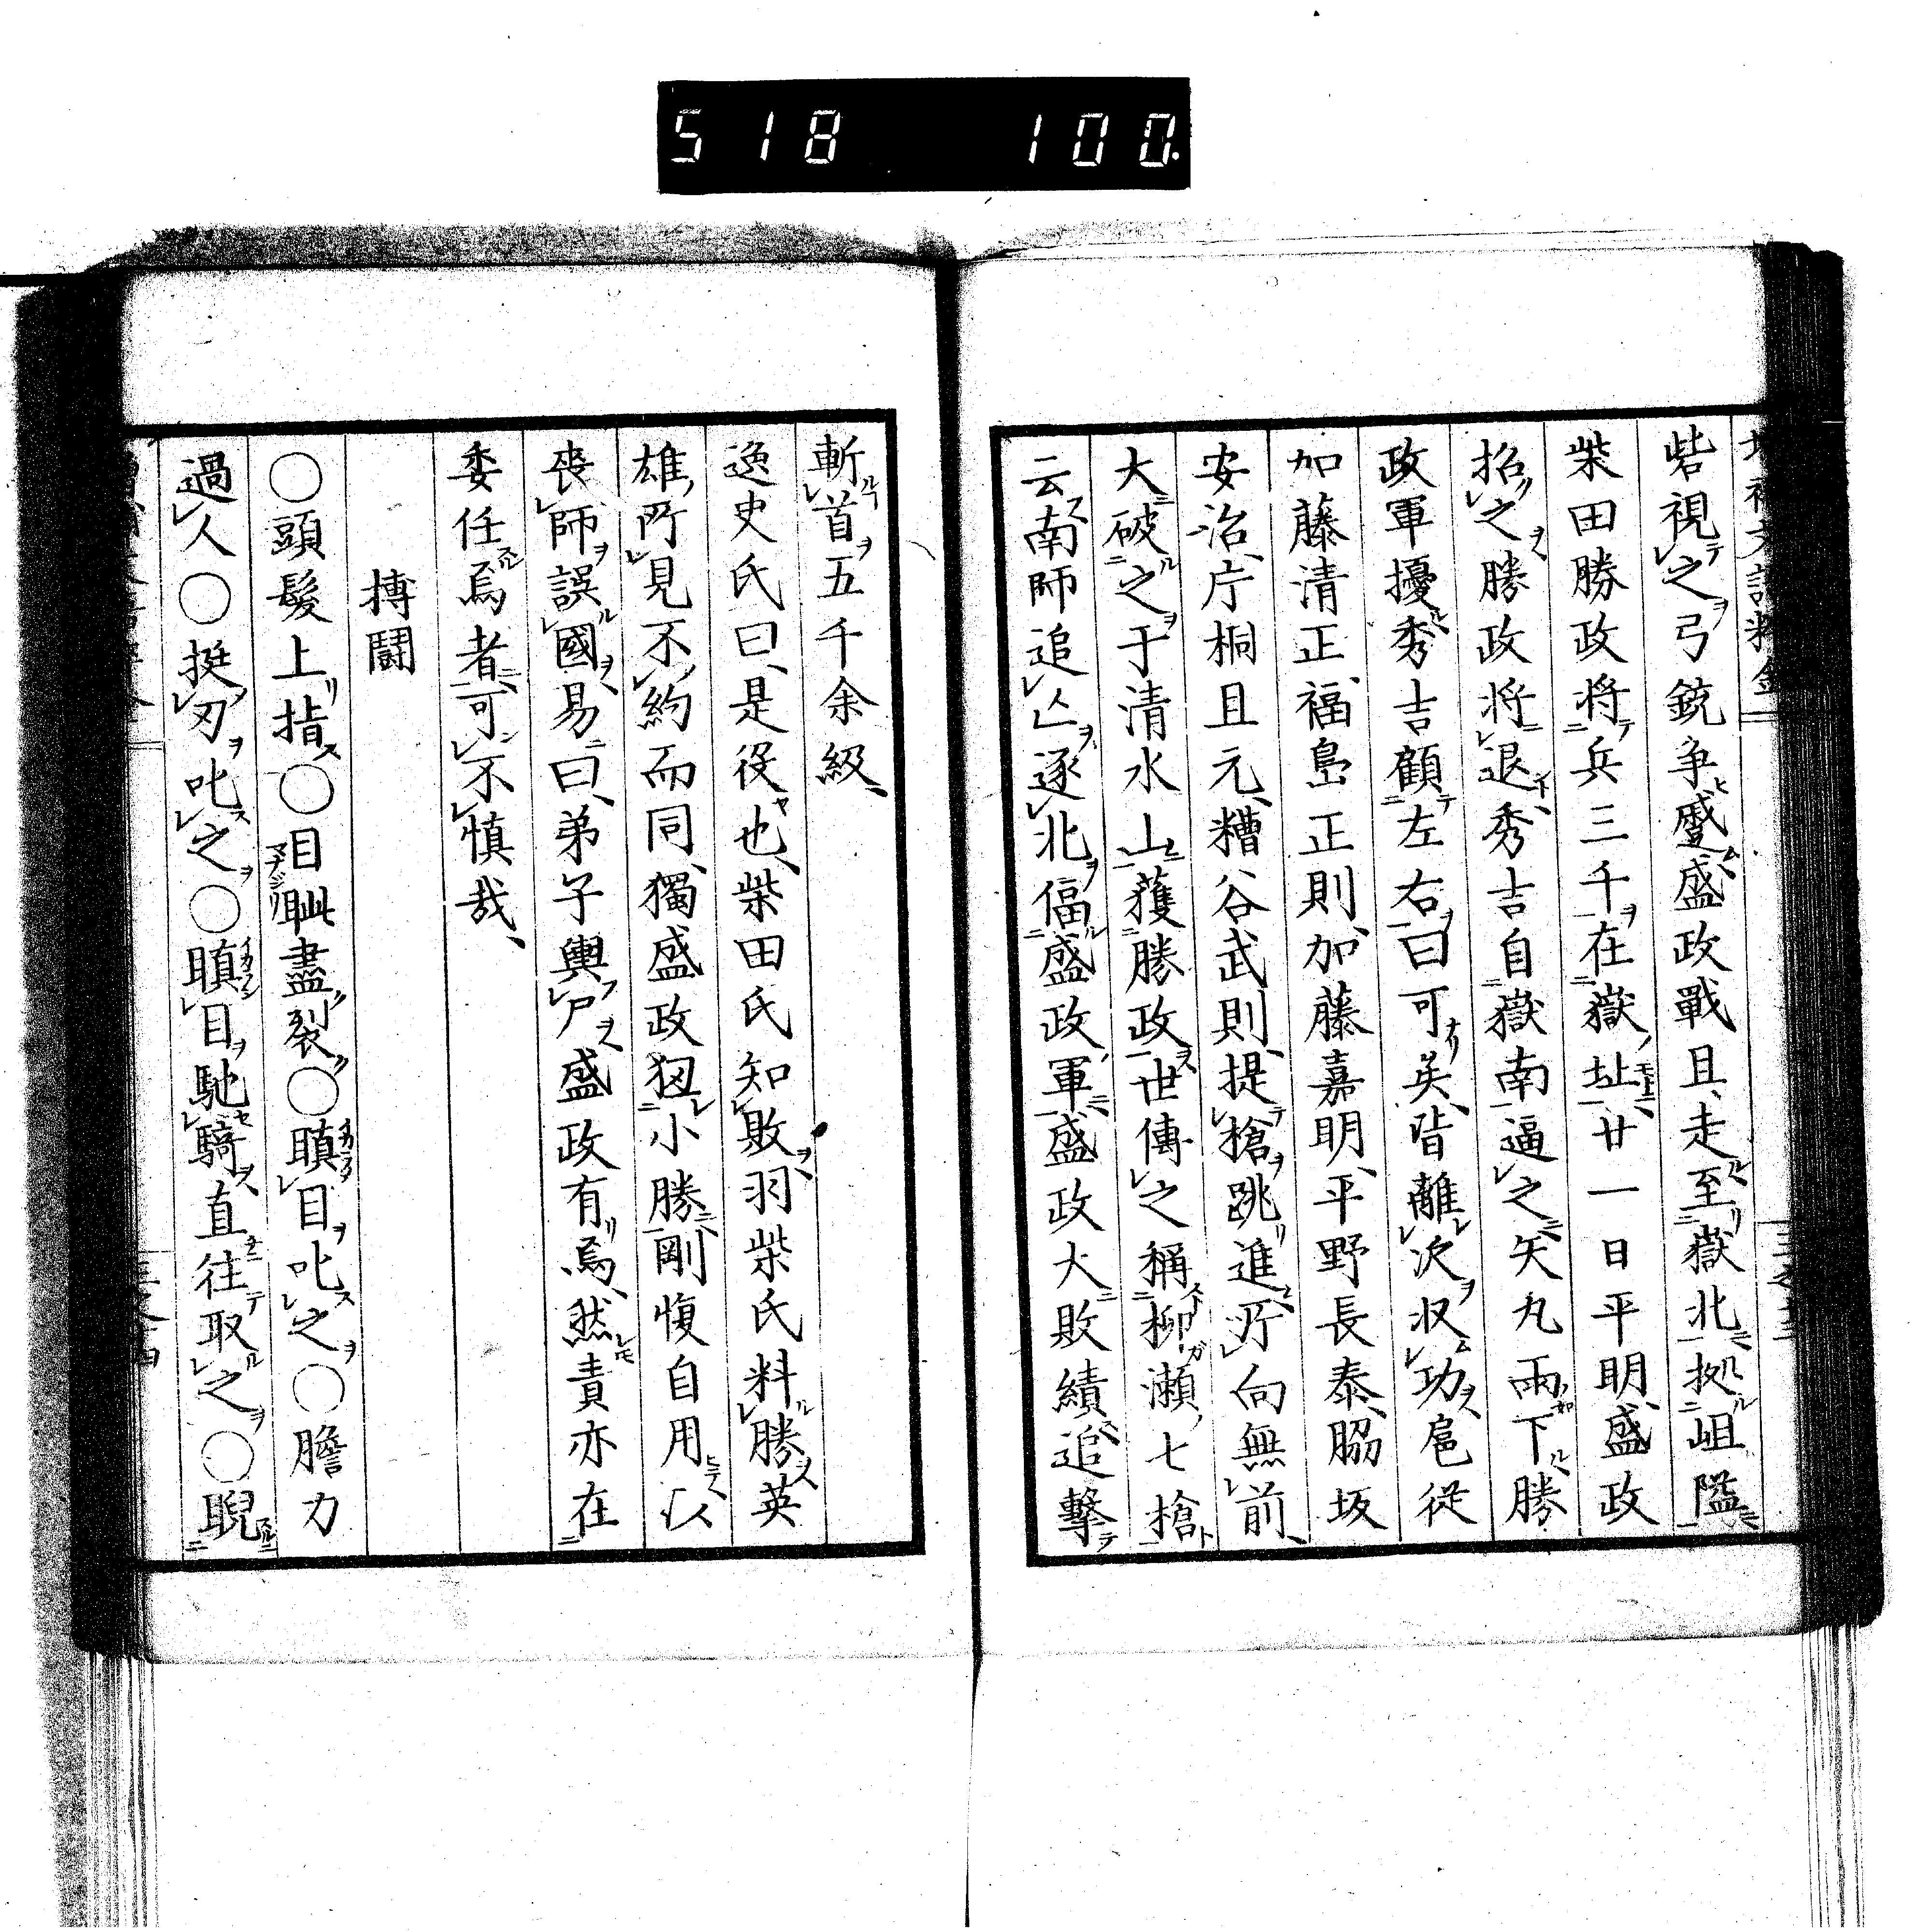 518 100.
砦視之弓銃争蹙盛政戰且走至嶽北拠岨隘
柴田勝政将兵三千在嶽址廿一日平明、盛政
招之勝政将退、秀吉自嶽南逼之矢丸雨下勝
政軍擾秀吉顧左右曰可矣、皆離次収功、扈従
加藤清正、福島正則、加藤嘉明、平野長泰、脇坂
安治、片桐且元、糟谷武則、提槍跳進、所向無前、
大破之于清水山獲勝政世傳之稱柳瀬七槍
云南師追亡逐北偪盛政軍、盛政大敗績追撃
斬首五千余級、
逸史氏曰、是役也、柴田氏知敗、羽柴氏料勝英
雄所見不約而同、獨盛政狃小勝剛愎自用以
喪師誤國、易曰、弟子輿尸盛政有焉、然責亦在
委任焉者、可不慎哉、
搏鬪
○頭髮上指○目眦盡裂○瞋目叱之○膽力
過人○挺刃叱之○瞋目馳騎、直往取之○睨